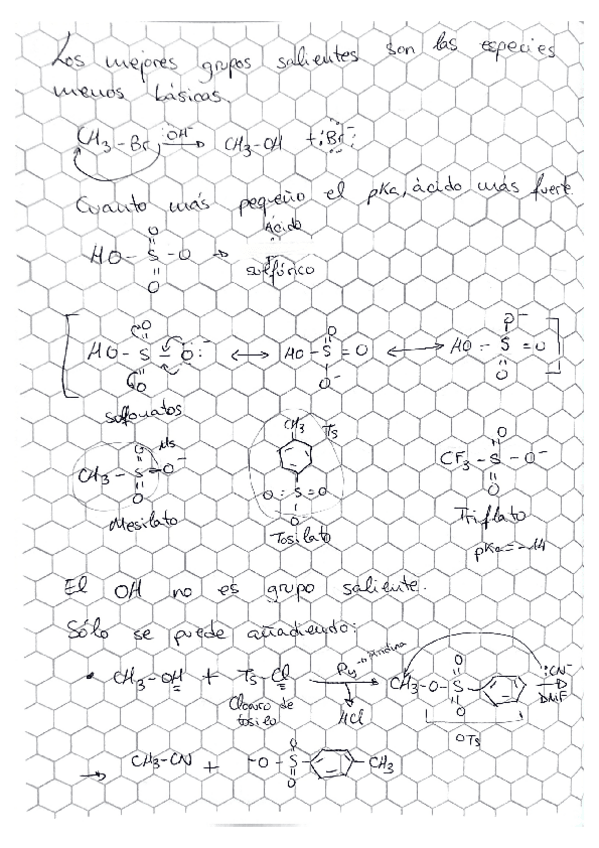 Los mejores grupos salientes son las especies
menos básicas.
CH3-Br :OH- → CH3-OH + :Br:-
Cuanto más pequeño el pKa, ácido más fuerte
HO-S-O → Ácido sulfúrico
O
O
HO-S-O:- ↔ HO-S=O ↔ HO-S=O
O
O
O
O-
O-
O
Sulfonatos
CH3-S-O- Ms
O
O
CH3
Ts
O=S=O
O
CF3-S-O-
O
O
Mesilato
Tosilato
Triflato
pKa=-14
El OH no es grupo saliente.
Sólo se puede añadiendo:
• CH3-OH + Ts-Cl Py→piridina CH3-O-S- :CN-
O
O
DMF
Cloruro de
tosilo
HCl
OTs
→ CH3-CN + -O-S- -CH3
O
O